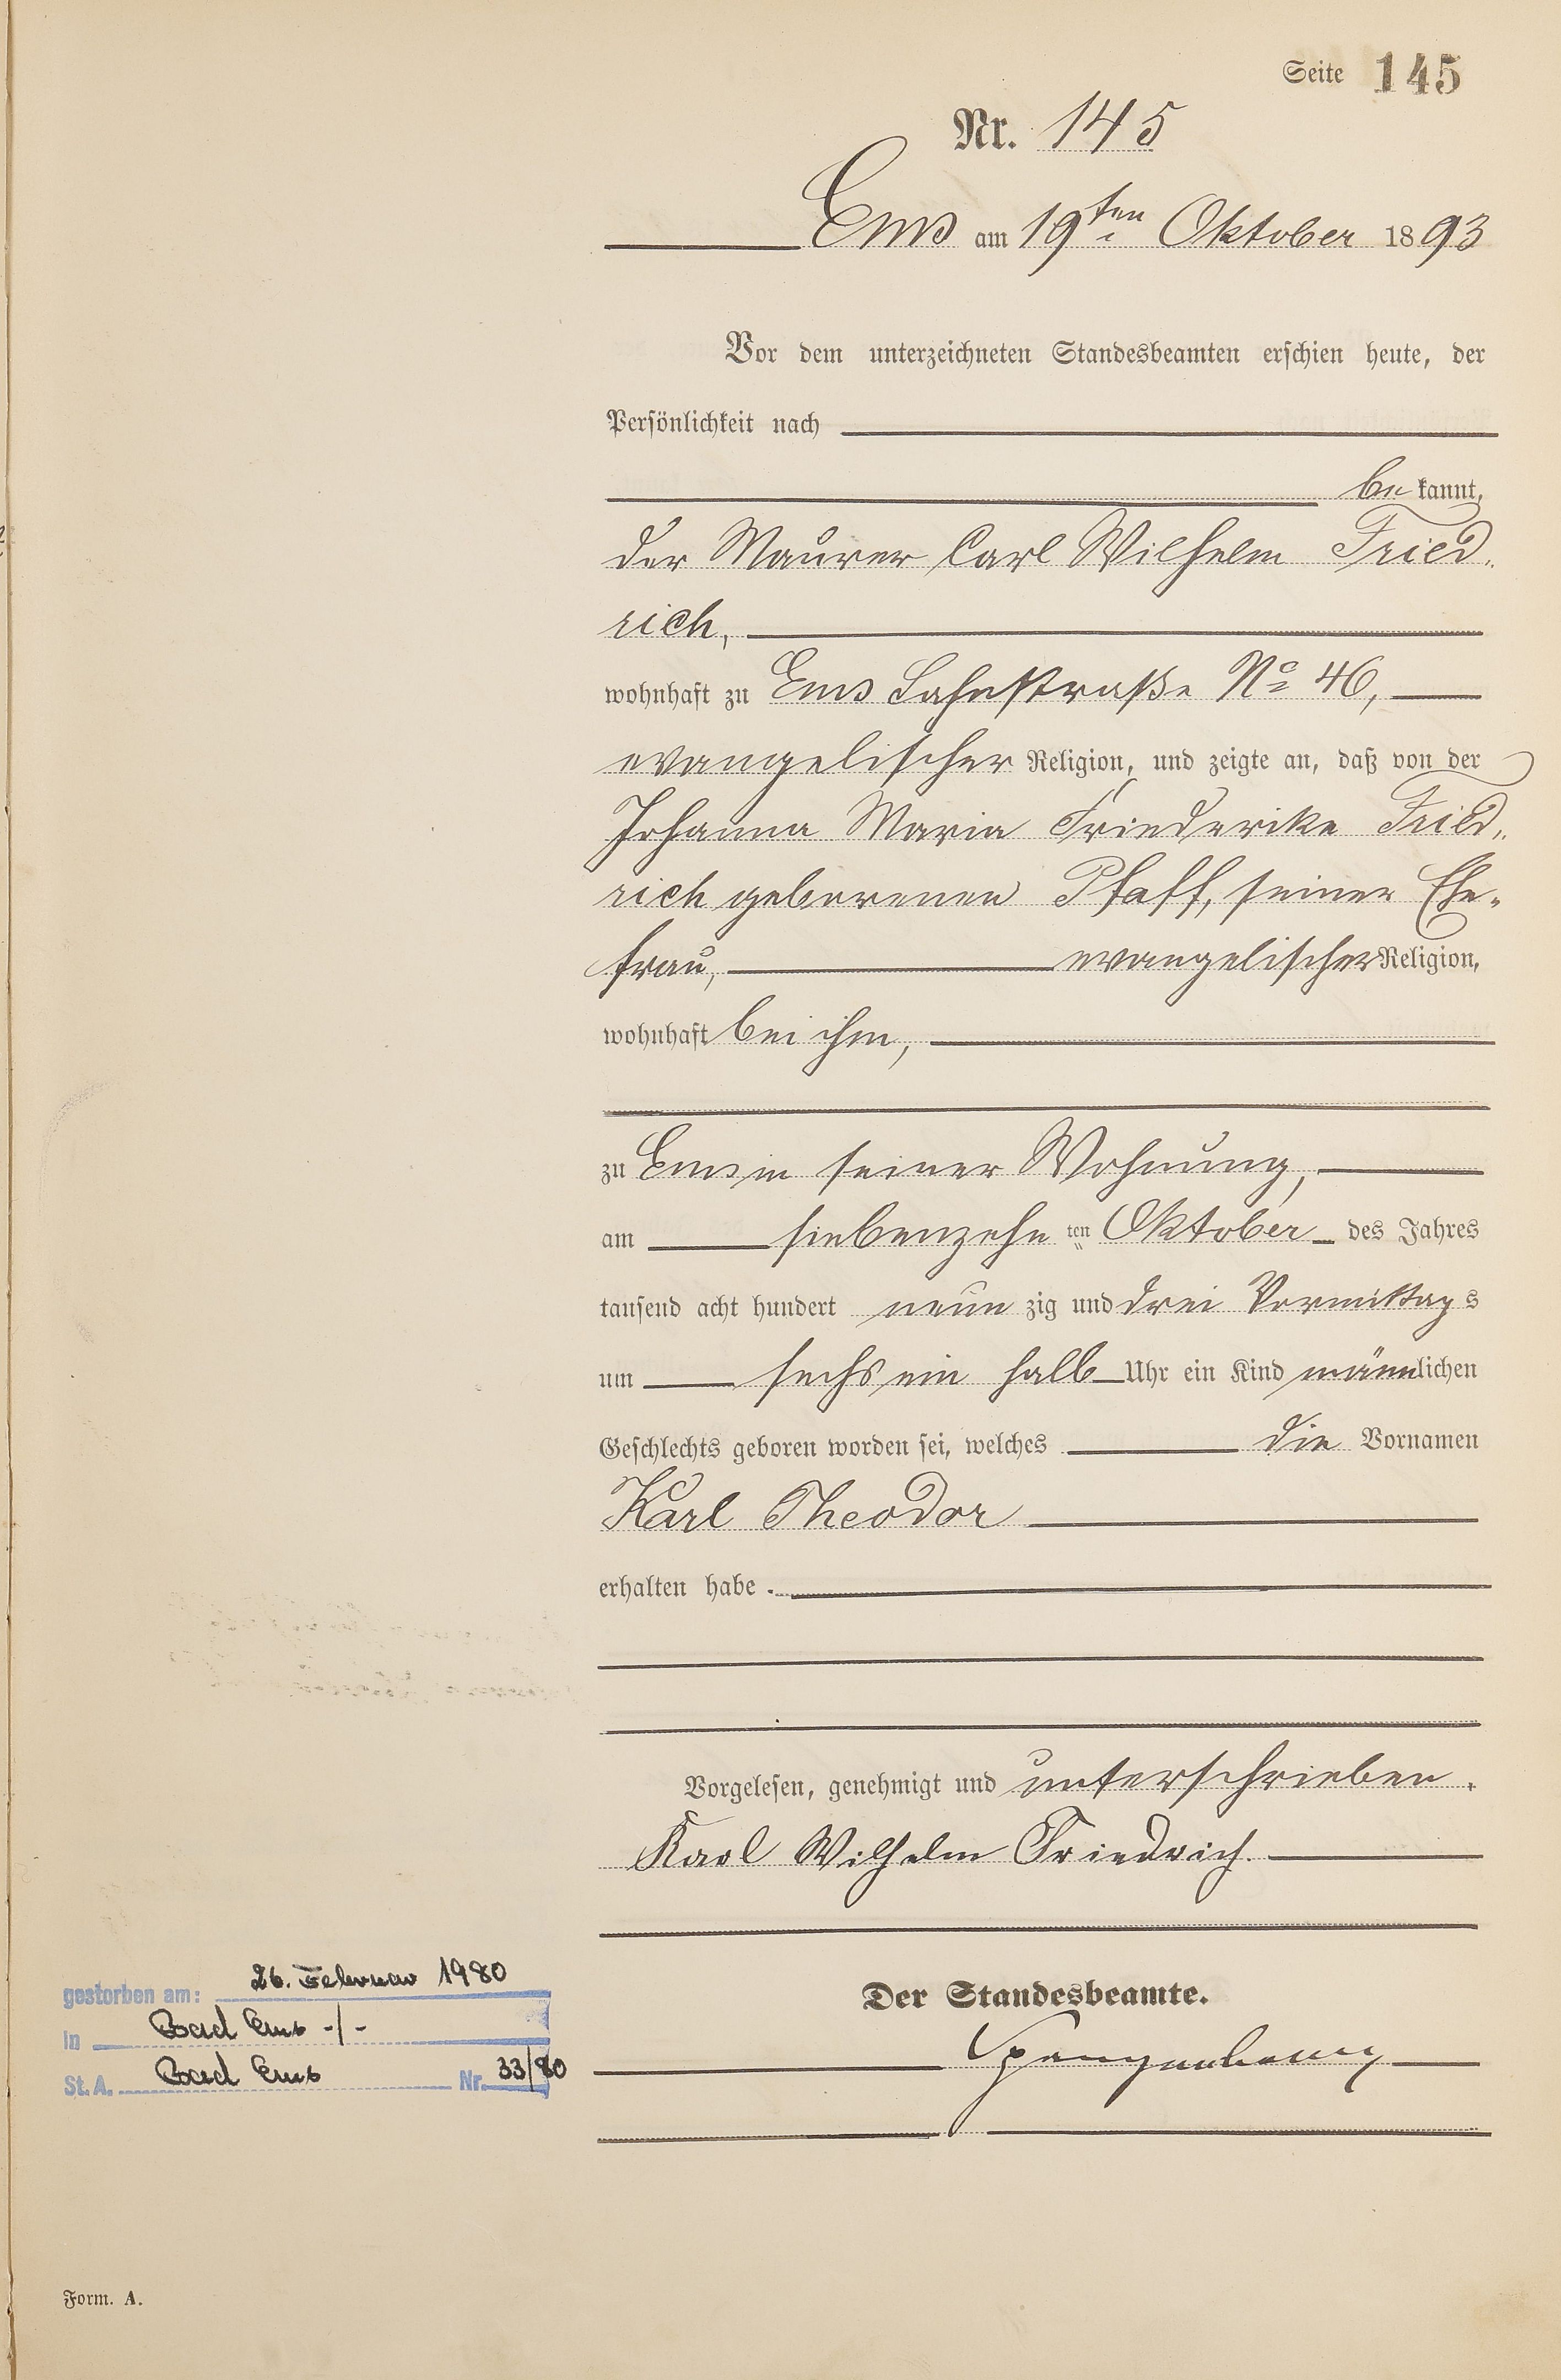 Seite 145
Nr. 145
Ems am 19ten Oktober 1893
Vor dem unterzeichneten Standesbeamten erschien heute, der
Persönlichkeit nach
be kannt,
der Maurer Carl Wilhelm Fried-
rich,
wohnhaft zu Ems Lahnstraße No 46,
evangelischer Religion, und zeigte an, daß von der
Johanna Maria Friederike Fried-
rich geborenen Pfaff, seiner Ehe-
frau, evangelischer Religion,
wohnhaft bei ihm,
zu Ems in seiner Wohnung,
am siebenzehn ten Oktober des Jahres
tausend acht hundert neun zig und drei Vormittag s
um sechs ein halb Uhr ein Kind männlichen
Geschlechts geboren worden sei, welches die Vornamen
Karl Theodor
erhalten habe.
Vorgelesen, genehmigt und unterschrieben.
Karl Wilhelm Friedrich.
Der Standesbeamte.
gestorben am: 26. Februar 1980
in Bad Ems -/-
St. A. Bad Ems Nr. 33/80
Form. A.